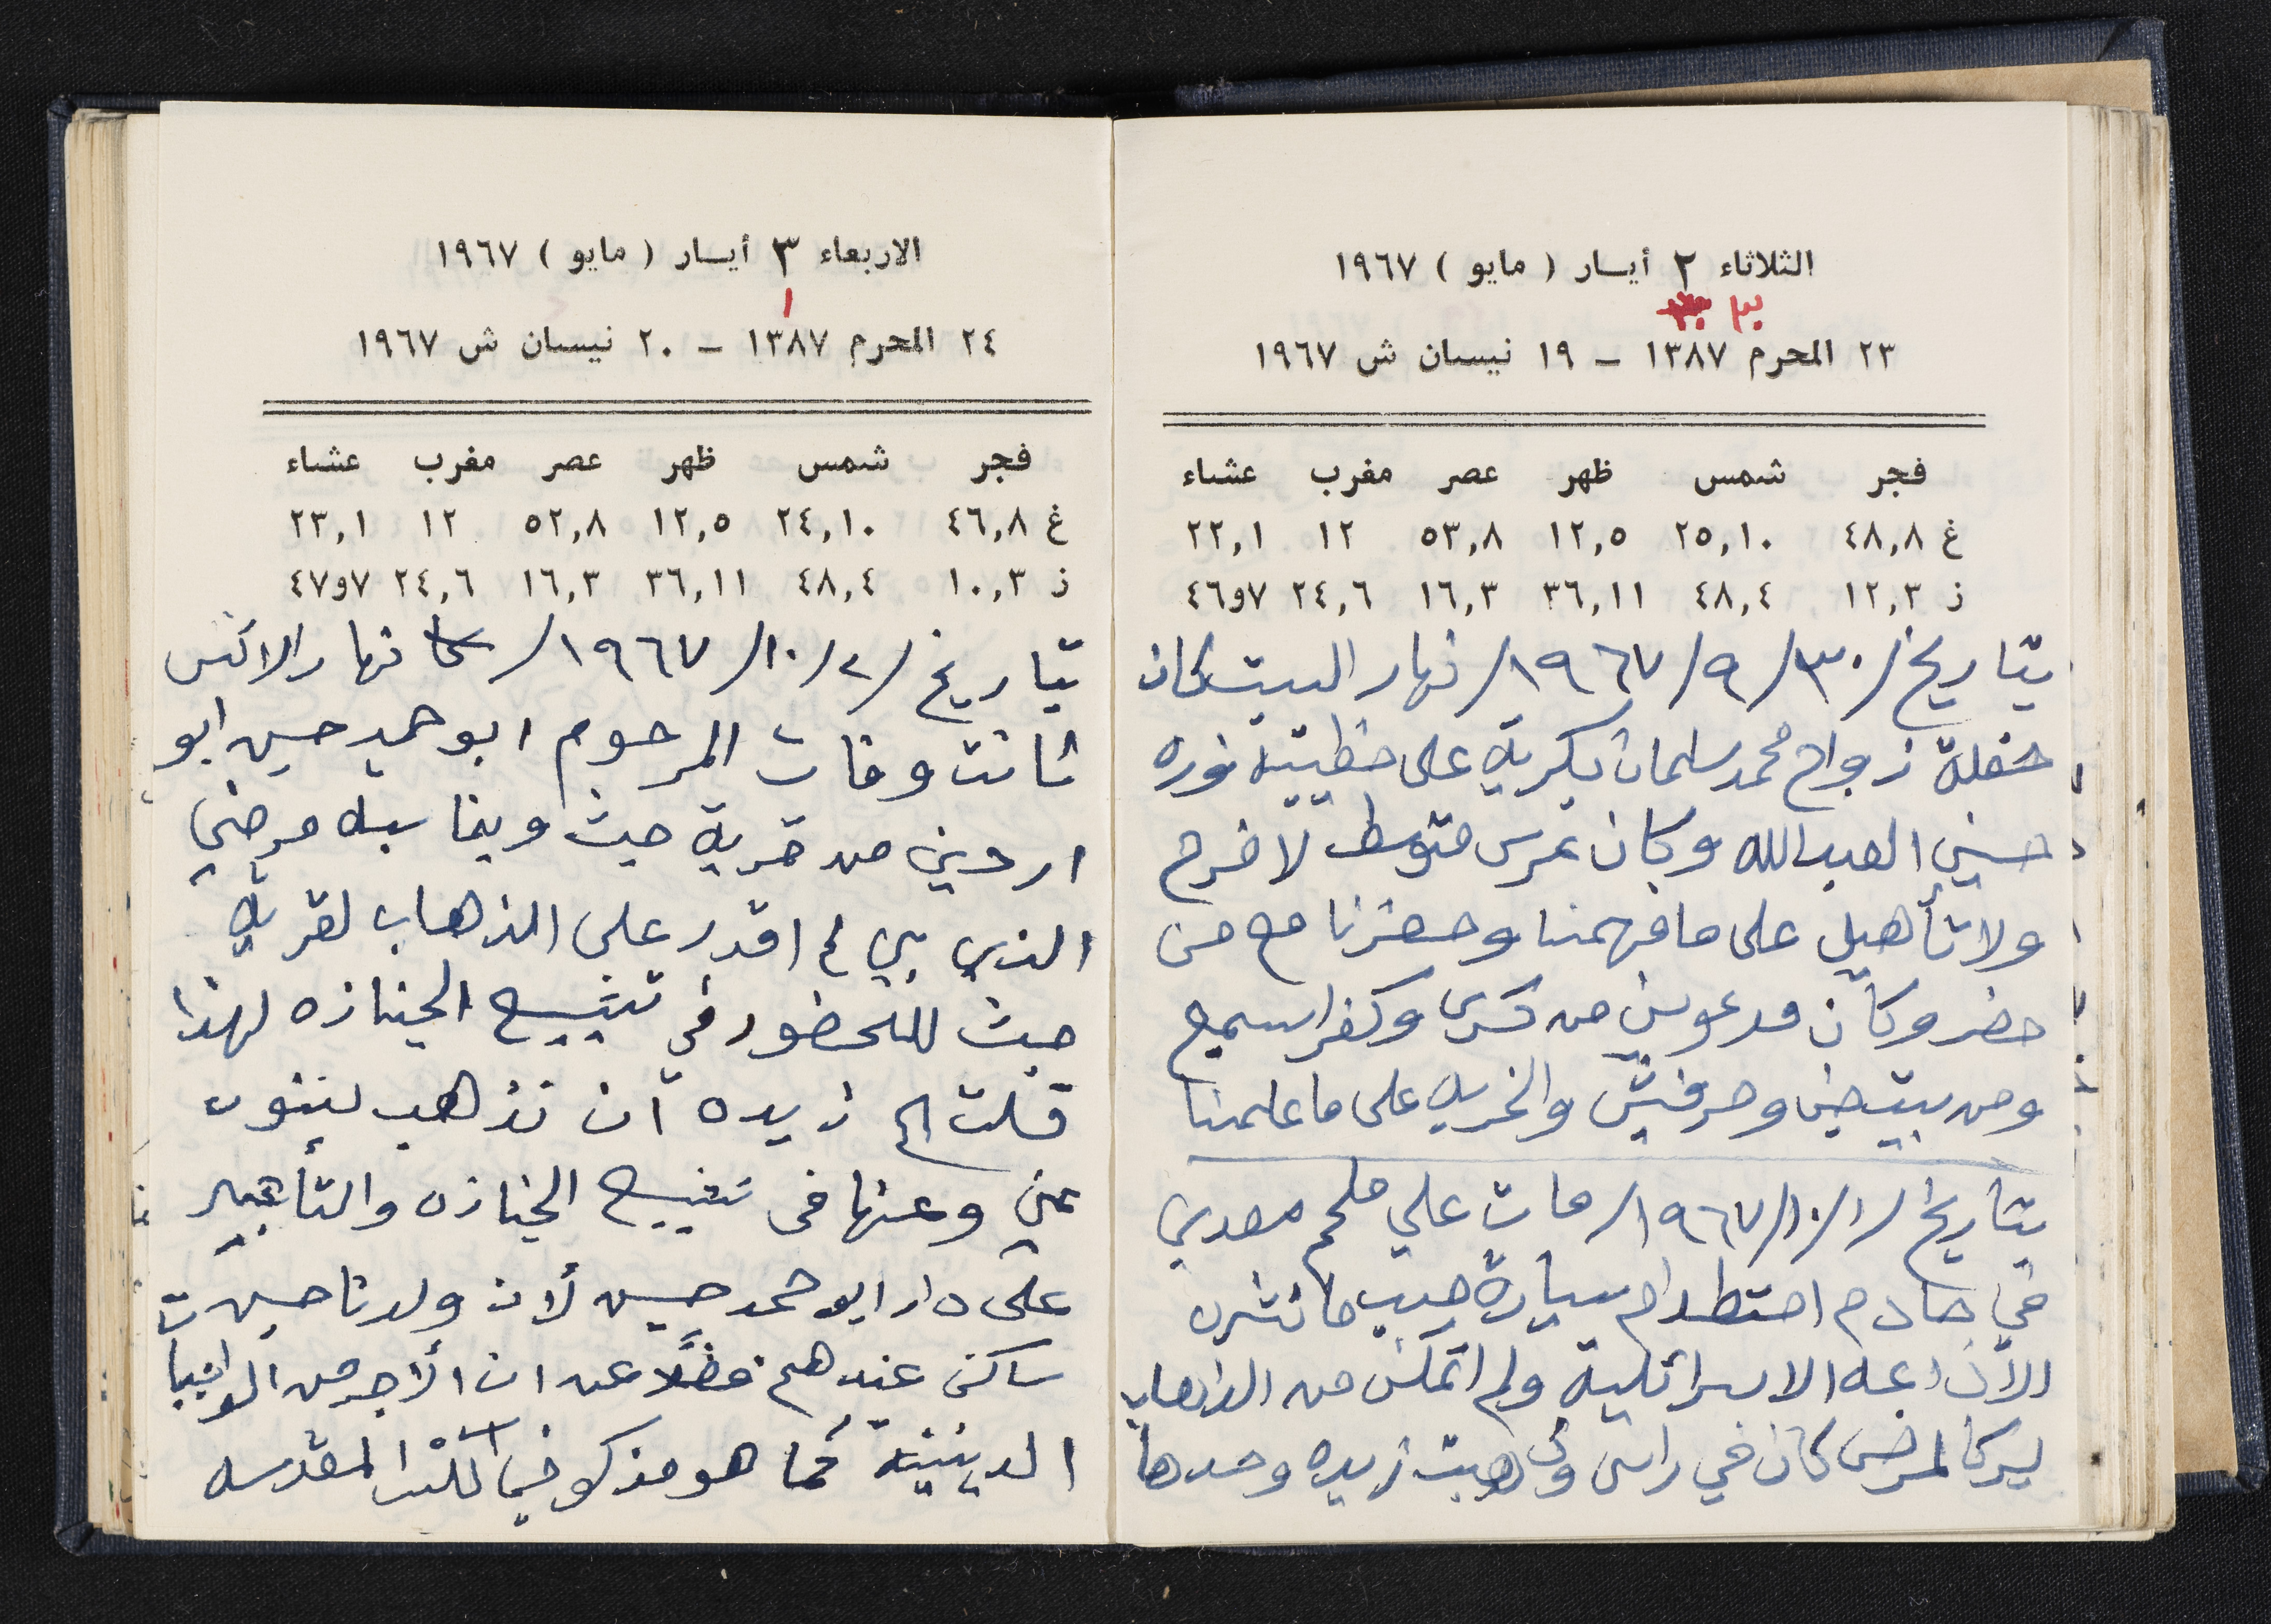 الثلاثاء ٢ أيسار ( مايو ) ١٩٦٧
٢٣ المحرم ١٣٨٧ – ١٩ نيسان ش ١٩٦٧
فجر شمس ظهر عصر مغرب عشاء
غ ٤٨,٨ ٢٥,١٠ ١٢,٥ ٥٣,٨ ١٢ ٢٢,١
ز ١٢,٣ ٤٨,٤ ٣٦,١١ ١٦,٣ ٢٤,٦ ٧و٤٦
بتاريخ /٣٠/ ٩/ ١٩٦٧/ نهار السبت كان
حفلة زواج محمد سلمان بكريه على خطيبته نوره
حسني العبدالله وكان عرس متوسط لا فرح
ولا تأهيل على ما فهمنا وحضرنا مع من
حضر وكان مدعوين من كسرى وكفر اسميع
ومن بيت جن وحرفيش والخربه على ما علمنا
بتاريخ /١/ ١٠/ ١٩٦٧/ مات علي ملحم معدي
في حادم اصتطدام سيارة حسب ما نشره
الأذاعه الاسرائلية ولم اتمكن من الذهاب
ليركا لمرض كان في راسي وذهبت زيده وحدها
الاربعاء ٣ أيسار ( مايو ) ١٩٦٧
١
٢٤ المحرم ١٣٨٧ – ٢٠ نيسان ش ١٩٦٧
فجر شمس ظهر عصر مغرب عشاء
غ ٤٦,٨ ٢٤,١٠ ١٢,٥ ٥٢,٨ ١٢ ٢٣,١
ز ١٠,٣ ٤٨,٤ ٣٦,١١ ١٦,٣ ٢٤,٦ ٧و٤٧
بتاريخ /٢/ ١٠/ ١٩٦٧/ نهار الاثنين
كانت وفات المرحوم ابو حمد حسين ابو
من قرية جث وبمناسبه مرضي
الذي بي لم اقدر على الذهاب لقرية
جث للحضور في تشييع الجنازه لهذا
قلت الى زيده أن تذهب لتنوب
عني وعنها في تشييع الجنازه
على دار ابو حمد حسين لأن ولدنا حسين
ساكن عندهم فضلًا عن ان الأجر من الواجبات
الدينية كما هو مذكو في الكتب المقدسه